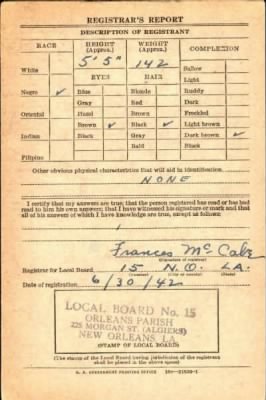 REGISTRAR'S REPORT
DESCRIPTION OF REGISTRANT
RACE HEIGHT (Approx.) WEIGHT (Approx.) COMPLEXION
5' 5" 142
White EYES HAIR Sallow
Light
Negro ✓ Blue Blonde Ruddy
Gray Red Dark
Oriental Hazel Brown Freckled
Brown ✓ Black ✓ Light brown
Indian Black Gray Dark brown ✓
Bald Black
Filipino
Other obvious physical characteristics that will aid in identification
NONE
I certify that my answers are true; that the person registered has read or has had
read to him his own answers; that I have witnessed his signature or mark and that
all of his answers of which I have knowledge are true, except as follows:
Frances McCabe
(Signature of registrar)
Registrar for Local Board 15 N.O. LA.
(Number) (City or county) (State)
Date of registration 6/30/42
LOCAL BOARD No. 15
ORLEANS PARISH
225 MORGAN ST. (ALGIERS)
NEW ORLEANS LA.
(STAMP OF LOCAL BOARD)
(The stamp of the Local Board having jurisdiction of the registrant
shall be placed in the above space.)
U. S. GOVERNMENT PRINTING OFFICE 16—21630-1